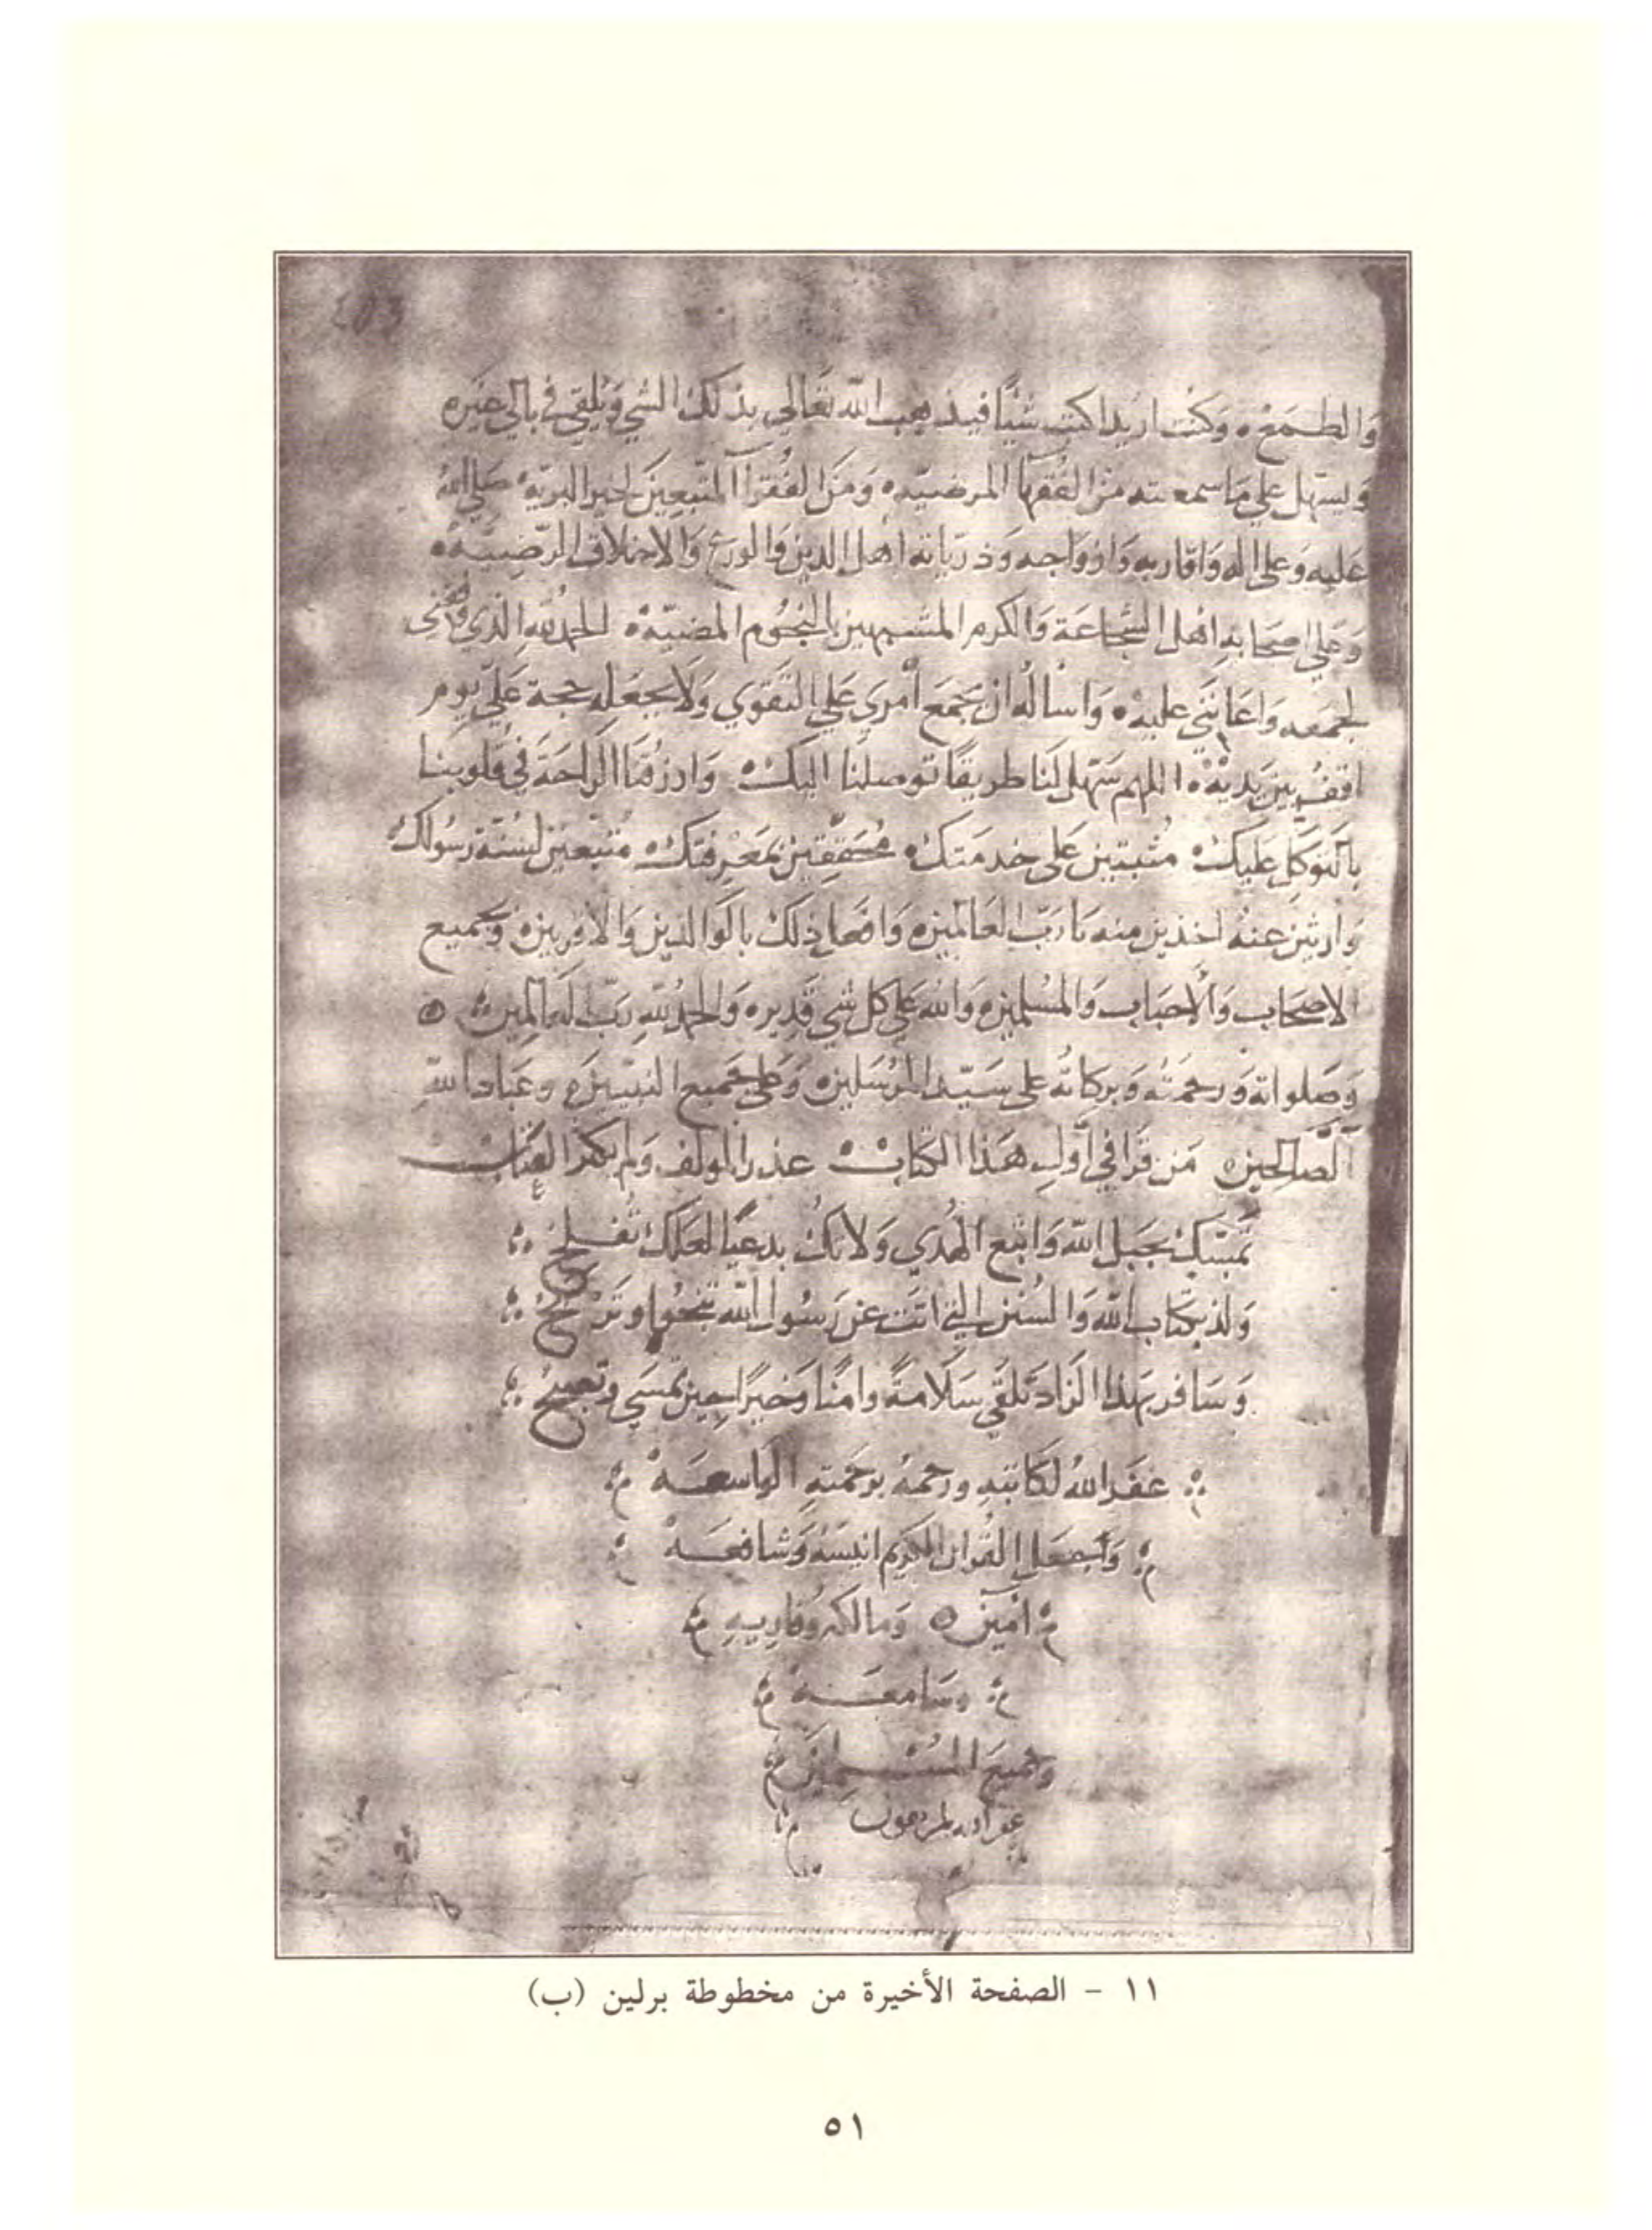 والطمع وكنت اريد اكتب شيئا فيذهب الله تعالى بذلك الشي ويلقي في بالي غيره
ويسهل علي ما سمعته من الفقهآ المرضيه ومن الفقرآ المتبعين لخير البرية صلى الله
عليه وعلى اله واقاربه وازواجه وذرياته اهل الدين والورع والاخلاق الرضيه
وعلى اصحابه اهل الشجاعة والكرم المشبهين بالنجوم المضيه الحمد لله الذي وفقني
لجمعه واعانني عليه واساله ان يجمع أمري على التقوي ولا يجعله حجة علي يوم
اقف بين يديه اللهم سهل لنا طريقا توصلنا اليك وارزقنا الراحة في قلوبنا
بالتوكل عليك مثبتين على خدمتك محققين بمعرفتك متبعين لسنة رسولك
وارثين عنه اخذين منه يا رب العالمين وافعل ذلك بالوالدين والاقربين وجميع
الاصحاب والاحباب والمسلمين والله على كل شي قدير والحمد لله رب العالمين
وصلواته ورحمته وبركاته على سيد المرسلين وعلى جميع النبيين وعباد الله
الصالحين من قرا في أول هذا الكتاب عذر المولف ولم يكثر العتاب
تمسك بحبل الله واتبع الهدي ولا تك بدعيا لعلك تفلح
ولذ بكتاب الله والسنن التي اتت عن رسول الله تنجوا وتربح
وسافر بهذا الزاد تلقي سلامة وامنا وخيرا حين تمسي وتصبح
غفر الله لكاتبه ورحمه برحمته الواسعه
وجعل القران الكريم انيسه وشافعه
امين ومالكه وقاريه
وسامعه
وجميع المسلمين
١١ - الصفحة الأخيرة من مخطوطة برلين (ب)
٥١